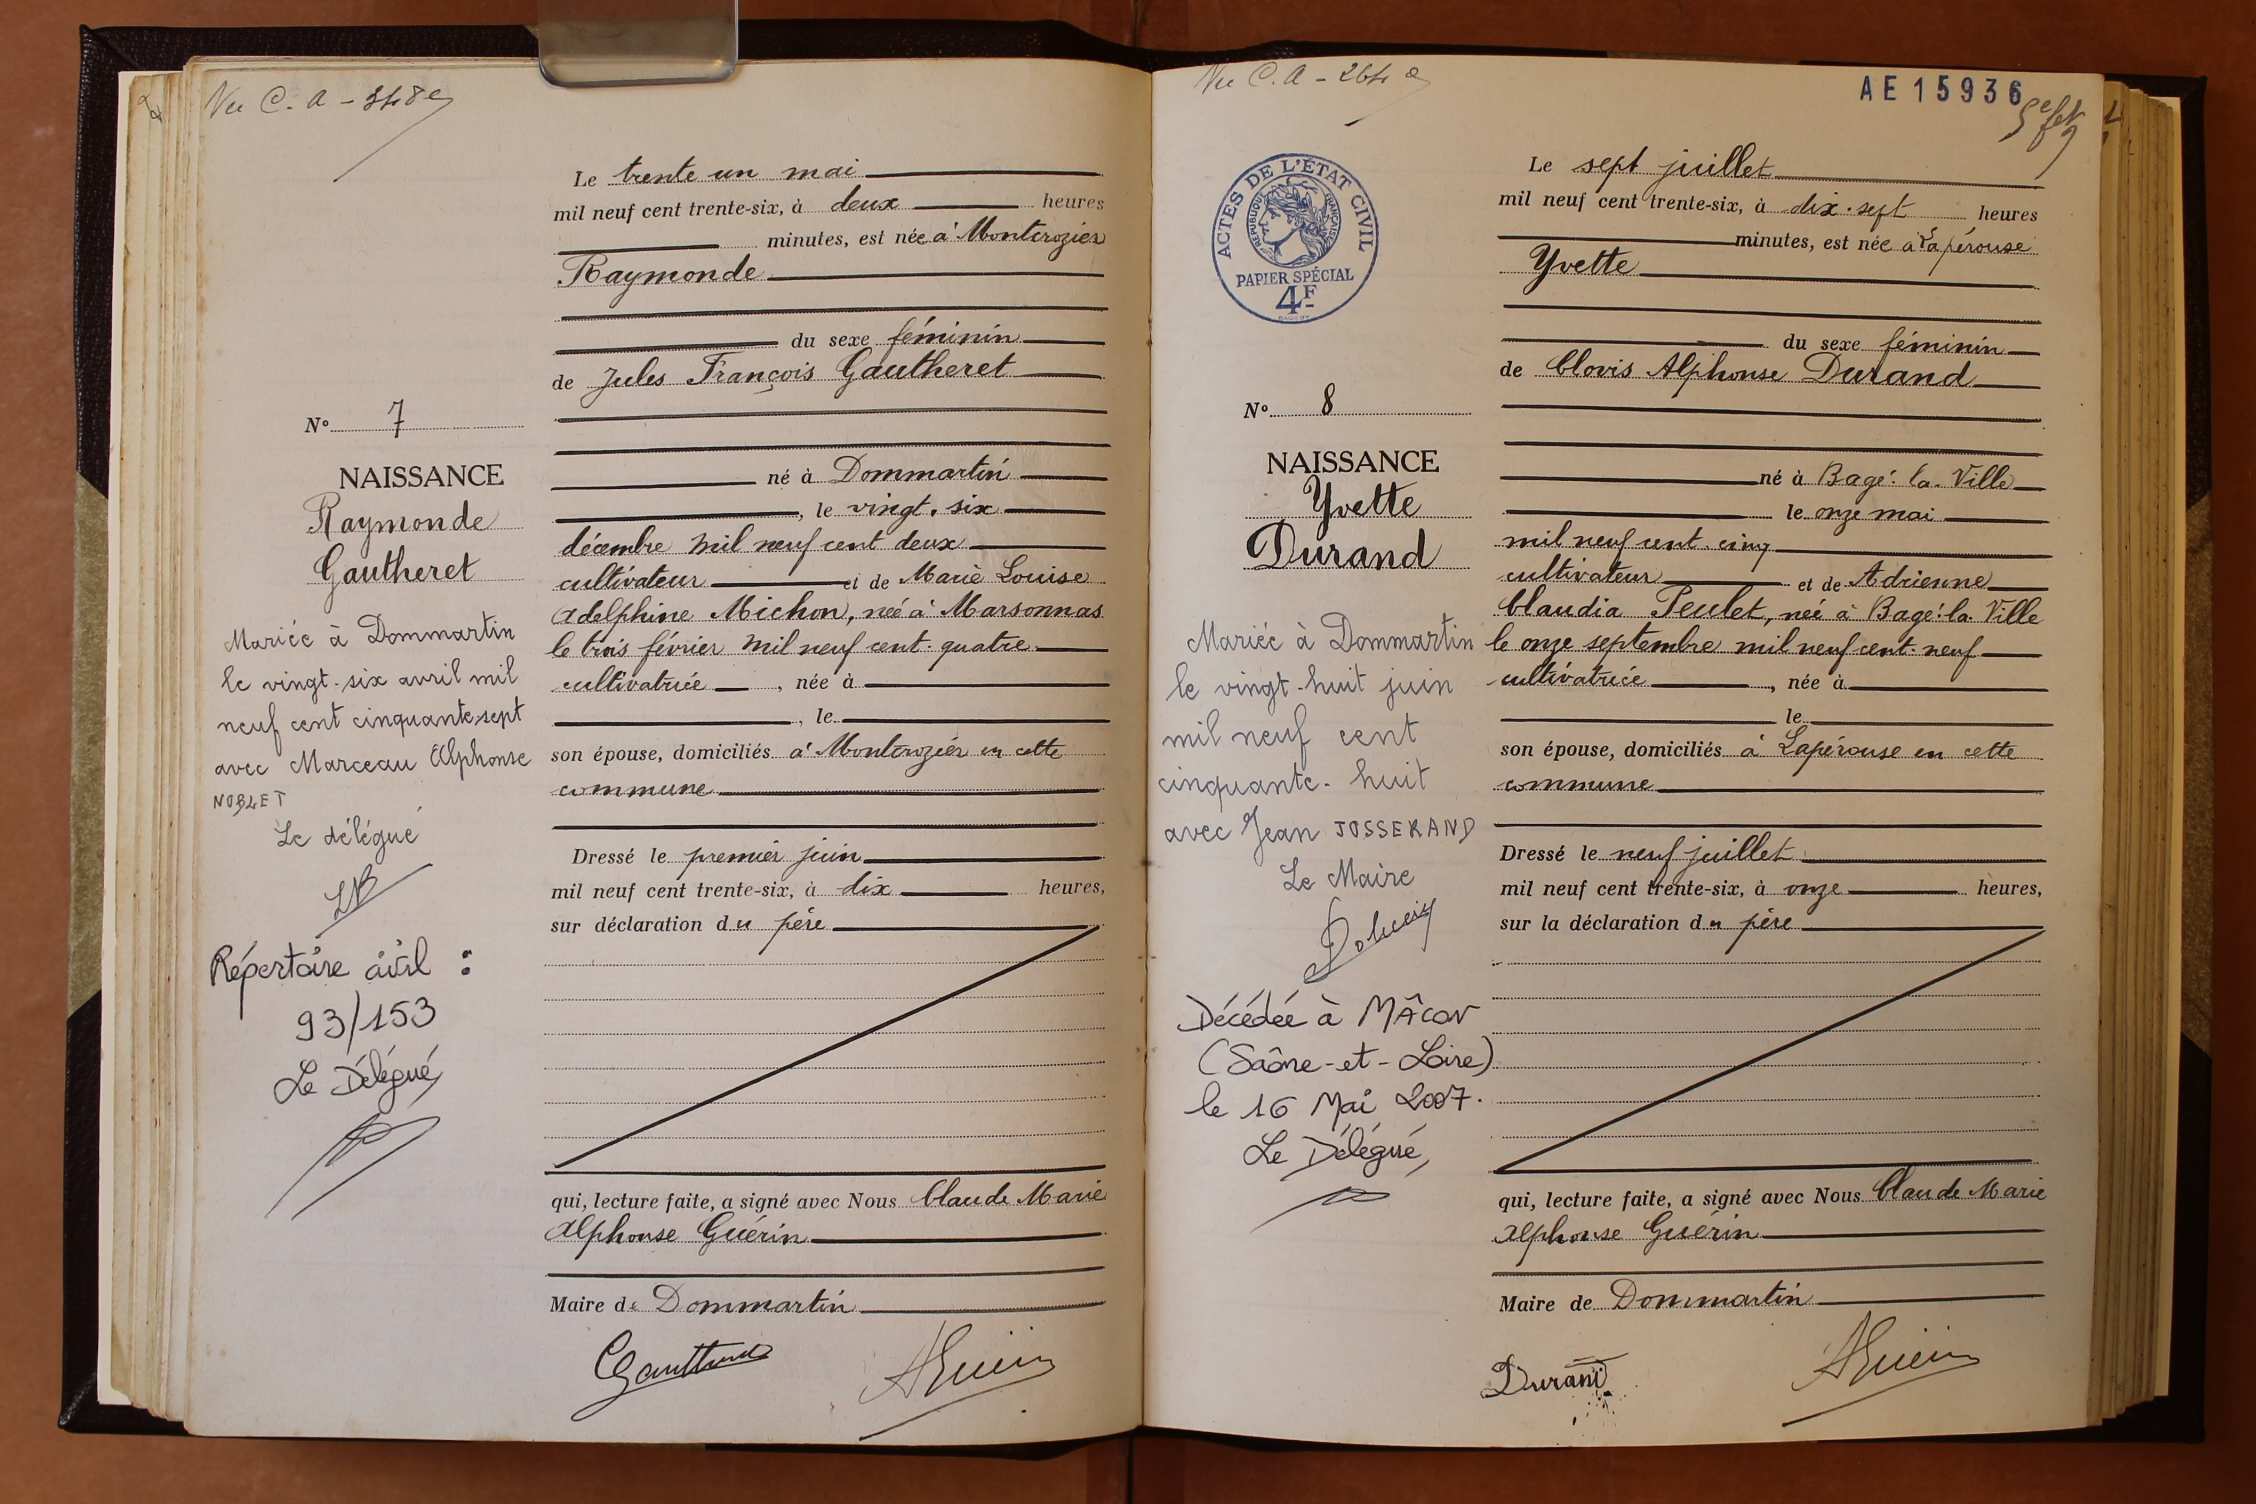 Vu C. A - 348e
Le trente un mai
mil neuf cent trente-six, à deux heures
minutes, est née à Montcrozier
Raymonde
du sexe féminin
de Jules François Gautheret
N° 7
NAISSANCE
Raymonde
Gautheret
né à Dommartin
, le vingt-six
décembre mil neuf cent deux
cultivateur et de Marie Louise
Adelphine Michon, née à Marsonnas
le trois février mil neuf cent quatre
cultivatrice , née à
, le
son épouse, domiciliés à Montcrozier en cette
commune
Mariée à Dommartin
le vingt-six avril mil
neuf cent cinquante-sept
avec Marceau Alphonse
NOBLET
Le délégué
Répertoire civil :
93/153
Le Délégué
Dressé le premier juin
mil neuf cent trente-six, à dix heures,
sur déclaration du père
qui, lecture faite, a signé avec Nous Claude Marie
Alphonse Guérin
Maire de Dommartin
AGuérin
Vu C. A - 264e
AE15936
ACTES DE L'ÉTAT CIVIL
RÉPUBLIQUE FRANÇAISE
PAPIER SPÉCIAL
4F
Le sept juillet
mil neuf cent trente-six, à dix-sept heures
minutes, est née à Lapérouse
Yvette
du sexe féminin
de Clovis Alphonse Durand
N° 8
NAISSANCE
Yvette
Durand
né à Bagé-la-Ville
le onze mai
mil neuf cent cinq
cultivateur et de Adrienne
Claudia Teulet, née à Bagé-la-Ville
le onze septembre mil neuf cent-neuf
cultivatrice , née à
le
son épouse, domiciliés à Lapérouse en cette
commune
Mariée à Dommartin
le vingt-huit juin
mil neuf cent
cinquante-huit
avec Jean JOSSERAND
Le Maire
Décédée à MÂCON
(Saône-et-Loire)
le 16 Mai 2007.
Le Délégué,
Dressé le neuf juillet
mil neuf cent trente-six, à onze heures,
sur la déclaration du père
qui, lecture faite, a signé avec Nous Claude Marie
Alphonse Guérin
Maire de Dommartin
Durand
AGuérin